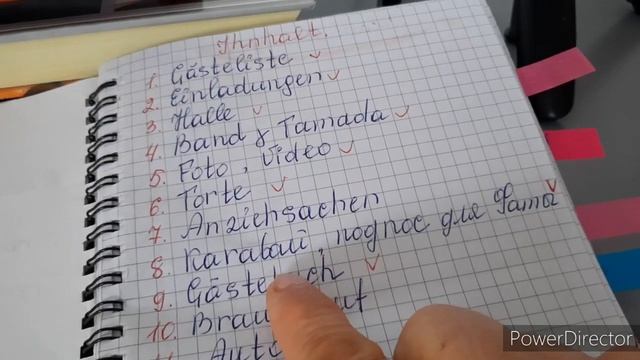 Ihnhalt.
1. Gästeliste ✓
2. Einladungen ✓
3. Halle ✓
4. Band & Tamada ✓
5. Foto, Video ✓
6. Torte ✓
7. Anziehsachen
8. Karaвай, поднос для Фаты ✓
9. ✓
10.
11. Auto
PowerDirector